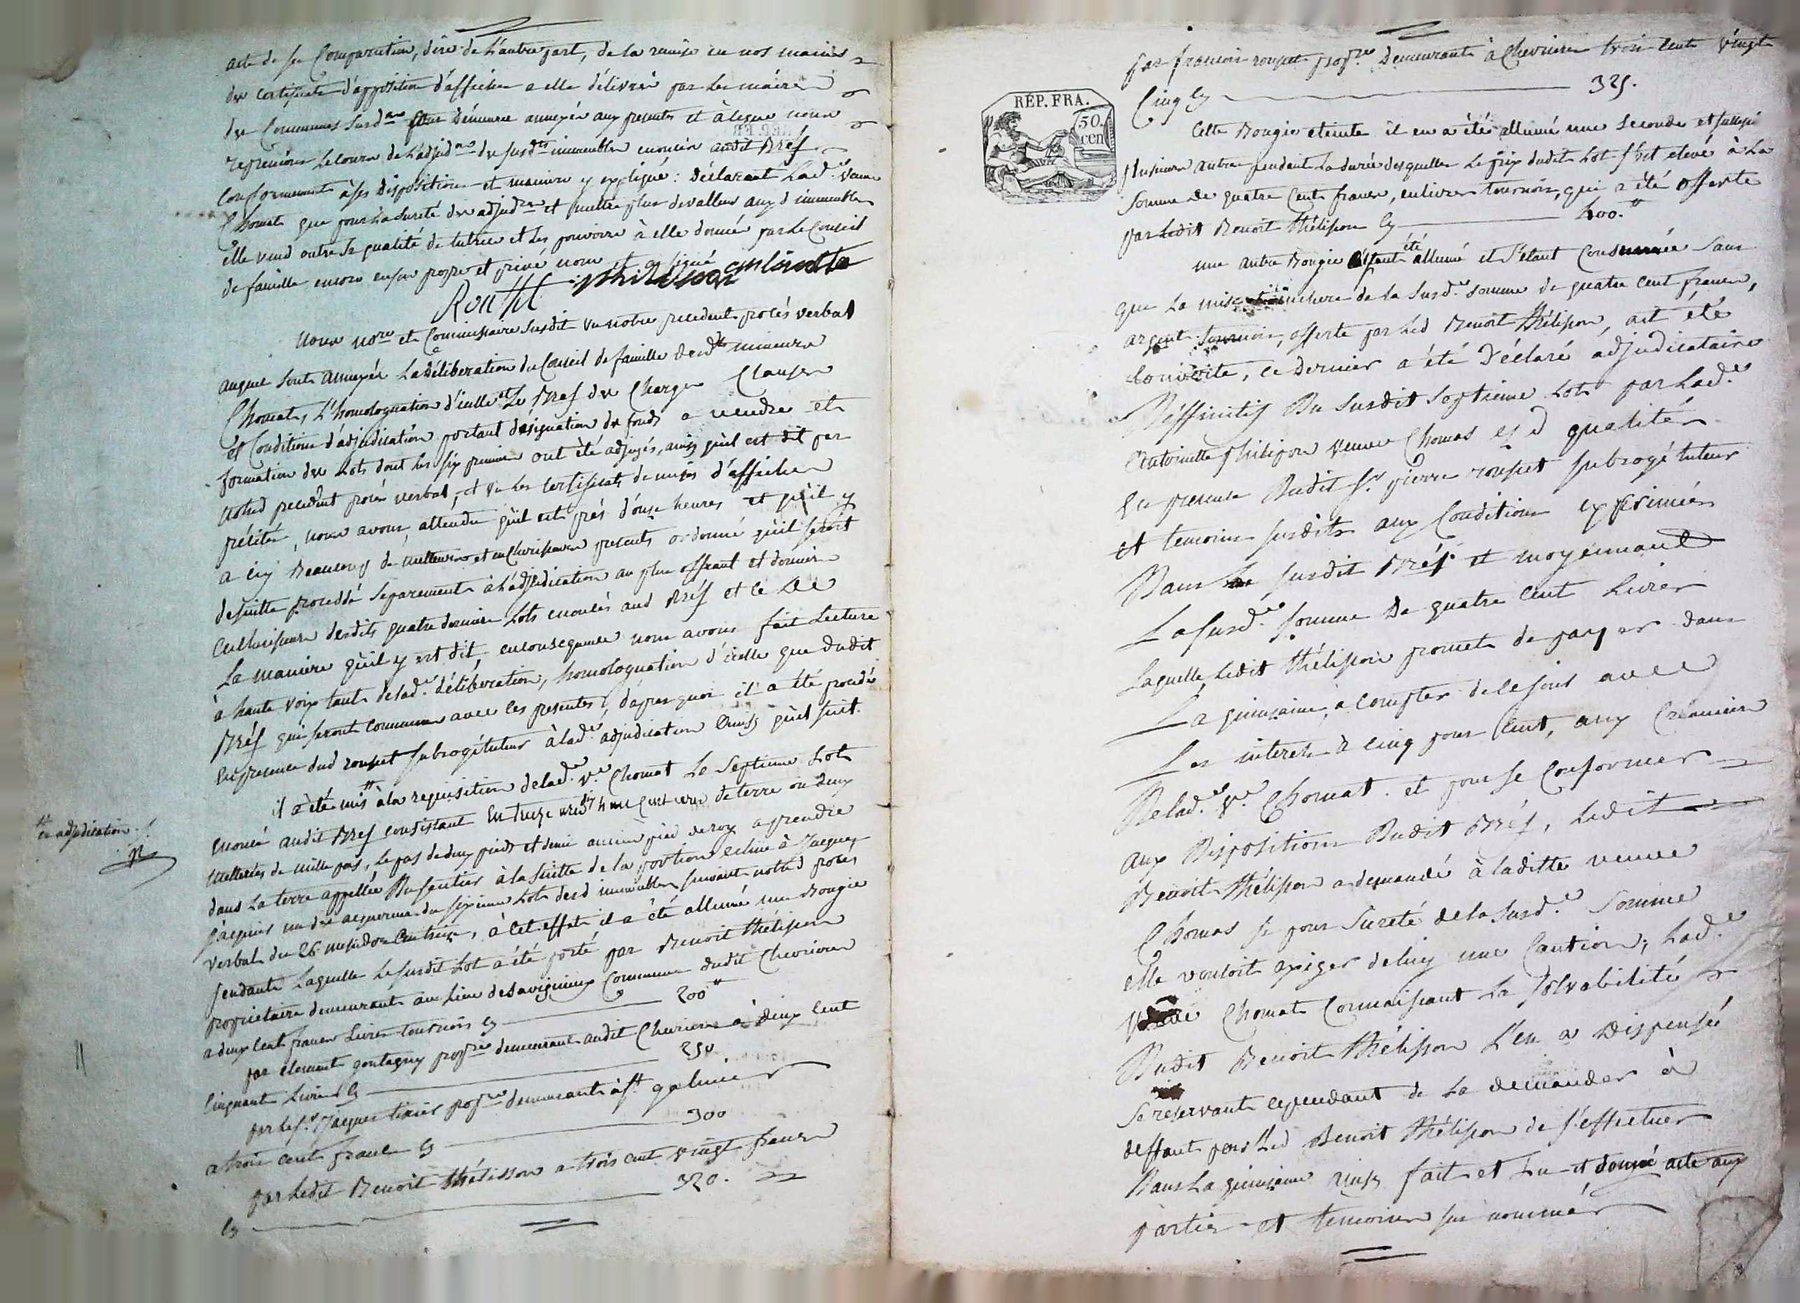 acte de sa Comparution, dire de l'autre part, de la remise en nos mains
des certificats d'apposition d'affiches a elle délivrés par les maires
des Communes susd. pour Demeurer annexés aux presents et à ce que nous
reprenions le cours de l'adjud.on des susdits immeubles enoncés audit Bref
Conformement à ses Dispositions et maniere y expliqué : Déclarant Lad.e veuve
Chomat que pour La sureté des adjud.res et mettre plus de valleur aux d immeubles
elle vend outre sa qualité de tutrice et les pouvoirs à elle donnés par le Conseil
de famille encore en son propre et privé nom et a signé
Nous no.re et Commissaire susdit vu notre precedent procès verbal
auquel sont annexés La Déliberation du Conseil de famille desd. mineurs
Chomat, L'homologuation d'icelle et Le Bref des Charges Clauses
et Conditions d'adjudication portant désignation des fonds a vendre et
formation des Lots dont les six premiers ont été adjugés, ainsy qu'il est dit par
notred precedent procès verbal, et vu les Certificats de mises d'affiches
pétités, nous avons attendu qu'il est près d'onze heures et qu'il y
a icy Beaucoup de metteurs et encherisseurs presents ordonné qu'il seroit
desuitte procédé séparement à l'adjudication au plus offrant et dernier
encherisseur desdits quatre derniers Lots enoncés aud Bref et ce de
La maniere qu'il y est dit, en consequence nous avons fait Lecture
à haute voix tant de lad.e délibération, homologuation d'icelle que dudit
Bréf qui seront communs avec les presentes, d'après quoi il a été procédé
en presence dud roupet subrogé tuteur à lad.e adjudication ainsy qu'il suit.
il a été mis à la requisition de lad.e v.e Chomat Le Septieme Lot
enoncé audit Bref consistant en de terre ou deux
metterées de mille pas, le pas de deux pieds et demi ancien pied de roy a prendre
dans La terre appellée Du Sentier a la suitte de la portion echue à Jacques
Jacquier un des acquereurs du sixieme Lot desd immeubles suivant notred procès
verbal du 26 messidor an treize, à cet effet il a été allumé une Bougie
pendant Laquelle Lesusdit Lot a été porté par Benoit thélisson
propriétaire demeurant au Lieu de Savignieux Commune dudit Chevrieres
a deux Cent francs Livres tournois Cy 200
par clement gontagny prop.re demeurant audit Chevrieres à deux Cent
cinquante Livres Cy 250
par le s.r Jacques prop.re demeurant à s.t galmier
a trois cent francs Cy 300
par Ledit Benoit thélisson a trois cent vingt francs
Cy 320.
et adjudication
RÉP. FRA.
50.
cen
par francois roupet prop.re Demeurant à Chevrieres trois Cent vingt
Cinq Cy 325.
Cette Bougie eteinte il en a été allumé une Seconde et
plusieurs autres pendant la durée desquelles Le prix dudit Lot s'est elevé à La
Somme de quatre Cent francs, en livres tournois, qui a été offerte
par Ledit Benoit thélisson Cy 400.
une autre Bougie ayant été allumé et s'étant Consumée sans
que La mise de la susd.e somme de quatre Cent francs,
argent tournois, offerte par Led Benoit thélisson, ait été
couverte, Ce Dernier a été Déclaré adjudicataire
Déffinitif Du Susdit Septieme Lot par Lad.e
antoinette philipon veuve Chomat es d qualités
En presence Dudit S.r pierre roupet subrogé tuteur
et temoins susdits aux Conditions exprimées
Dans le susdit Bréf et moyennant
La susd.e somme De quatre Cent Livres
Laquelle, Ledit thélisson promet de payer dans
La quinzaine, à compter de ce jour avec
Les interets à cinq pour Cent, aux Créanciers
De lad.e v.e Chomat. et pour se Conformer
aux Dispositions Dudit Bréf, Ledit
Benoit thélisson a demandé à laditte veuve
Chomat si pour Sureté de la susd.e Somme
elle vouloit exiger de luy une Caution, Lad.e
veuve Chomat Connaissant La Solvabilité
Dudit Benoit thélisson L'en a Dispensé
Se reservant cependant de La demander à
deffaut par Led Benoit thélisson de s'effectuer
Dans La quinzaine ainsy fait et Lu et donné acte aux
parties et temoins sus nommés